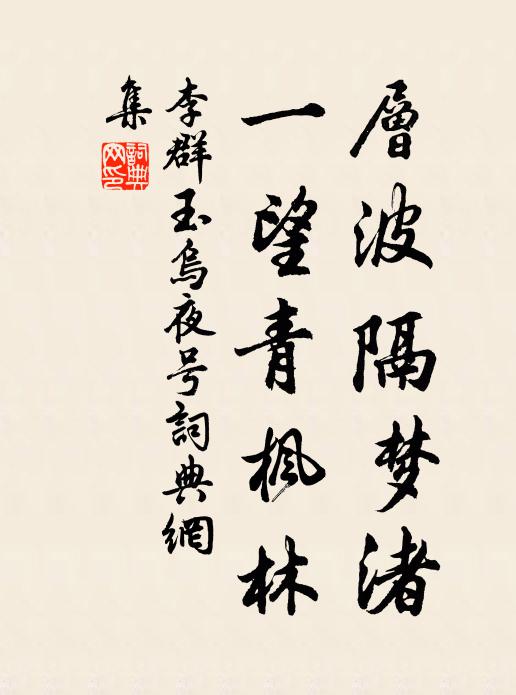 層波隔梦渚
一望青枫林
李群玉烏夜号詞典網
集
詞典网印